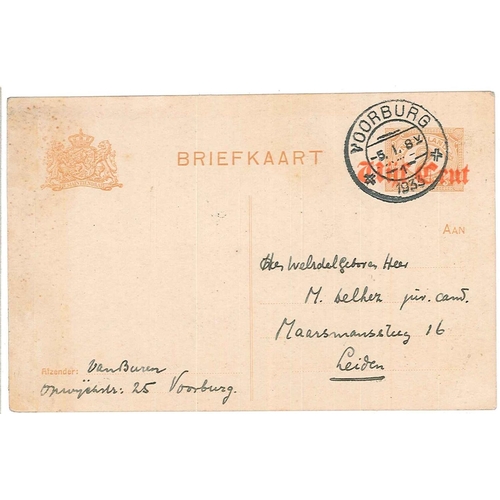 BRIEFKAART
VOORBURG
-5.1.8V
1
1933
Vijf Cent
AAN
Den Weledelgeboren Heer
M. Delhez jur. cand.
Maarsmanssteeg 16
Leiden
Afzender: Van Buren
Opwijckstr: 25 Voorburg.